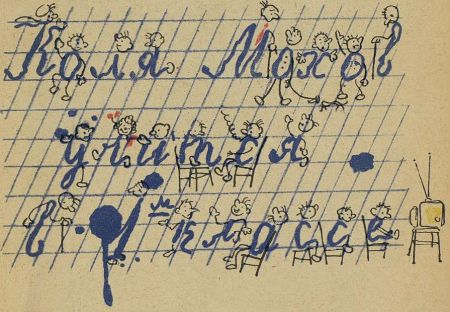 Коля Мохов
учится
в 1м классе